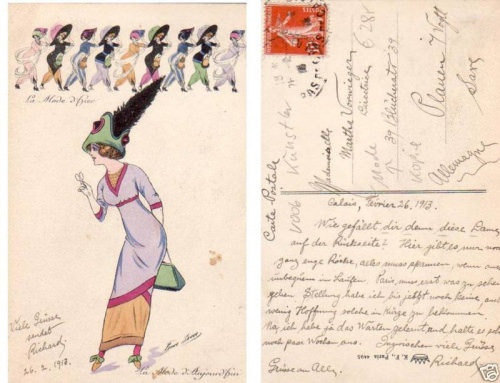 La Mode d'hier
Viele Grüsse
sendet
Richard
26. 2. 1913.
Xavier Sager
La Mode d'Aujourd'hui
Carte Postale
Künstler
Mademoiselle
Marthe
Directrice
39
Mode
Plauen i. Vogtl.
Allemagne
Calais, Février 26, 1913.
Wie gefällt dir denn diese Dame
auf der Rückseite? Hier gibt es nur noch
ganz enge Röcke, alles muss spannen, wenn auch
unbequem im Laufen. Paris muss erst was zu sehen
geben. Stellung habe ich bis jetzt noch keine, auch
wenig Hoffnung solche in Kürze zu bekommen.
Na, ich habe ja das Warten gelernt und halte es schon
noch paar Wochen aus. Inzwischen viele Grüsse
Grüsse an Alle. Richard
Paris